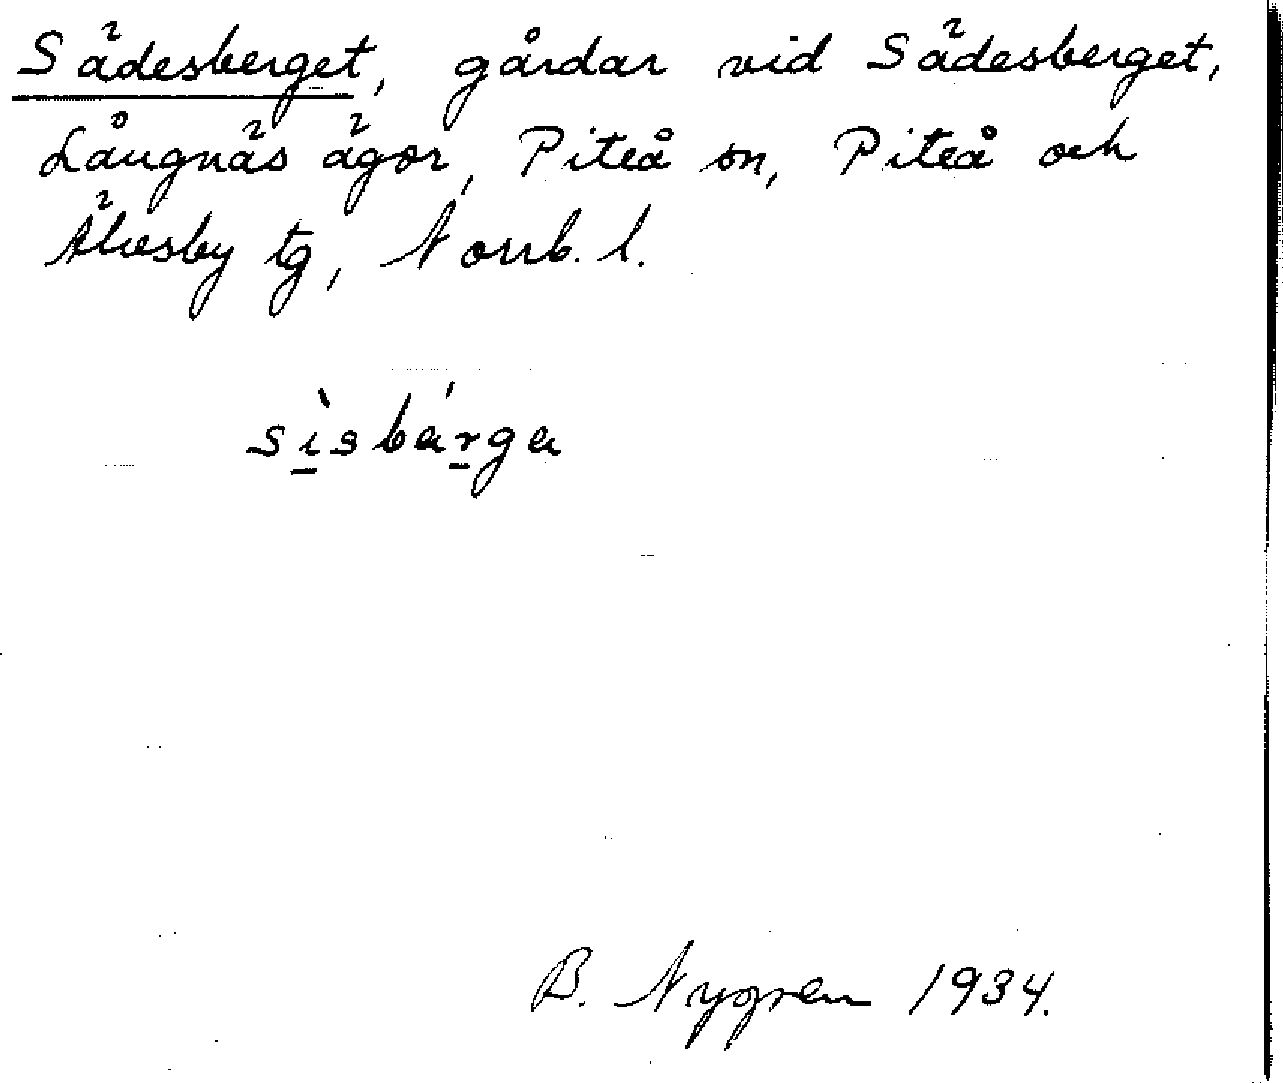 Sädesberget, gårdar vid Sädesberget,
Långnäs ägor, Piteå sn, Piteå och
Älvsby tg, Norrb. l.
sìsbárga
B. Nygren 1934.